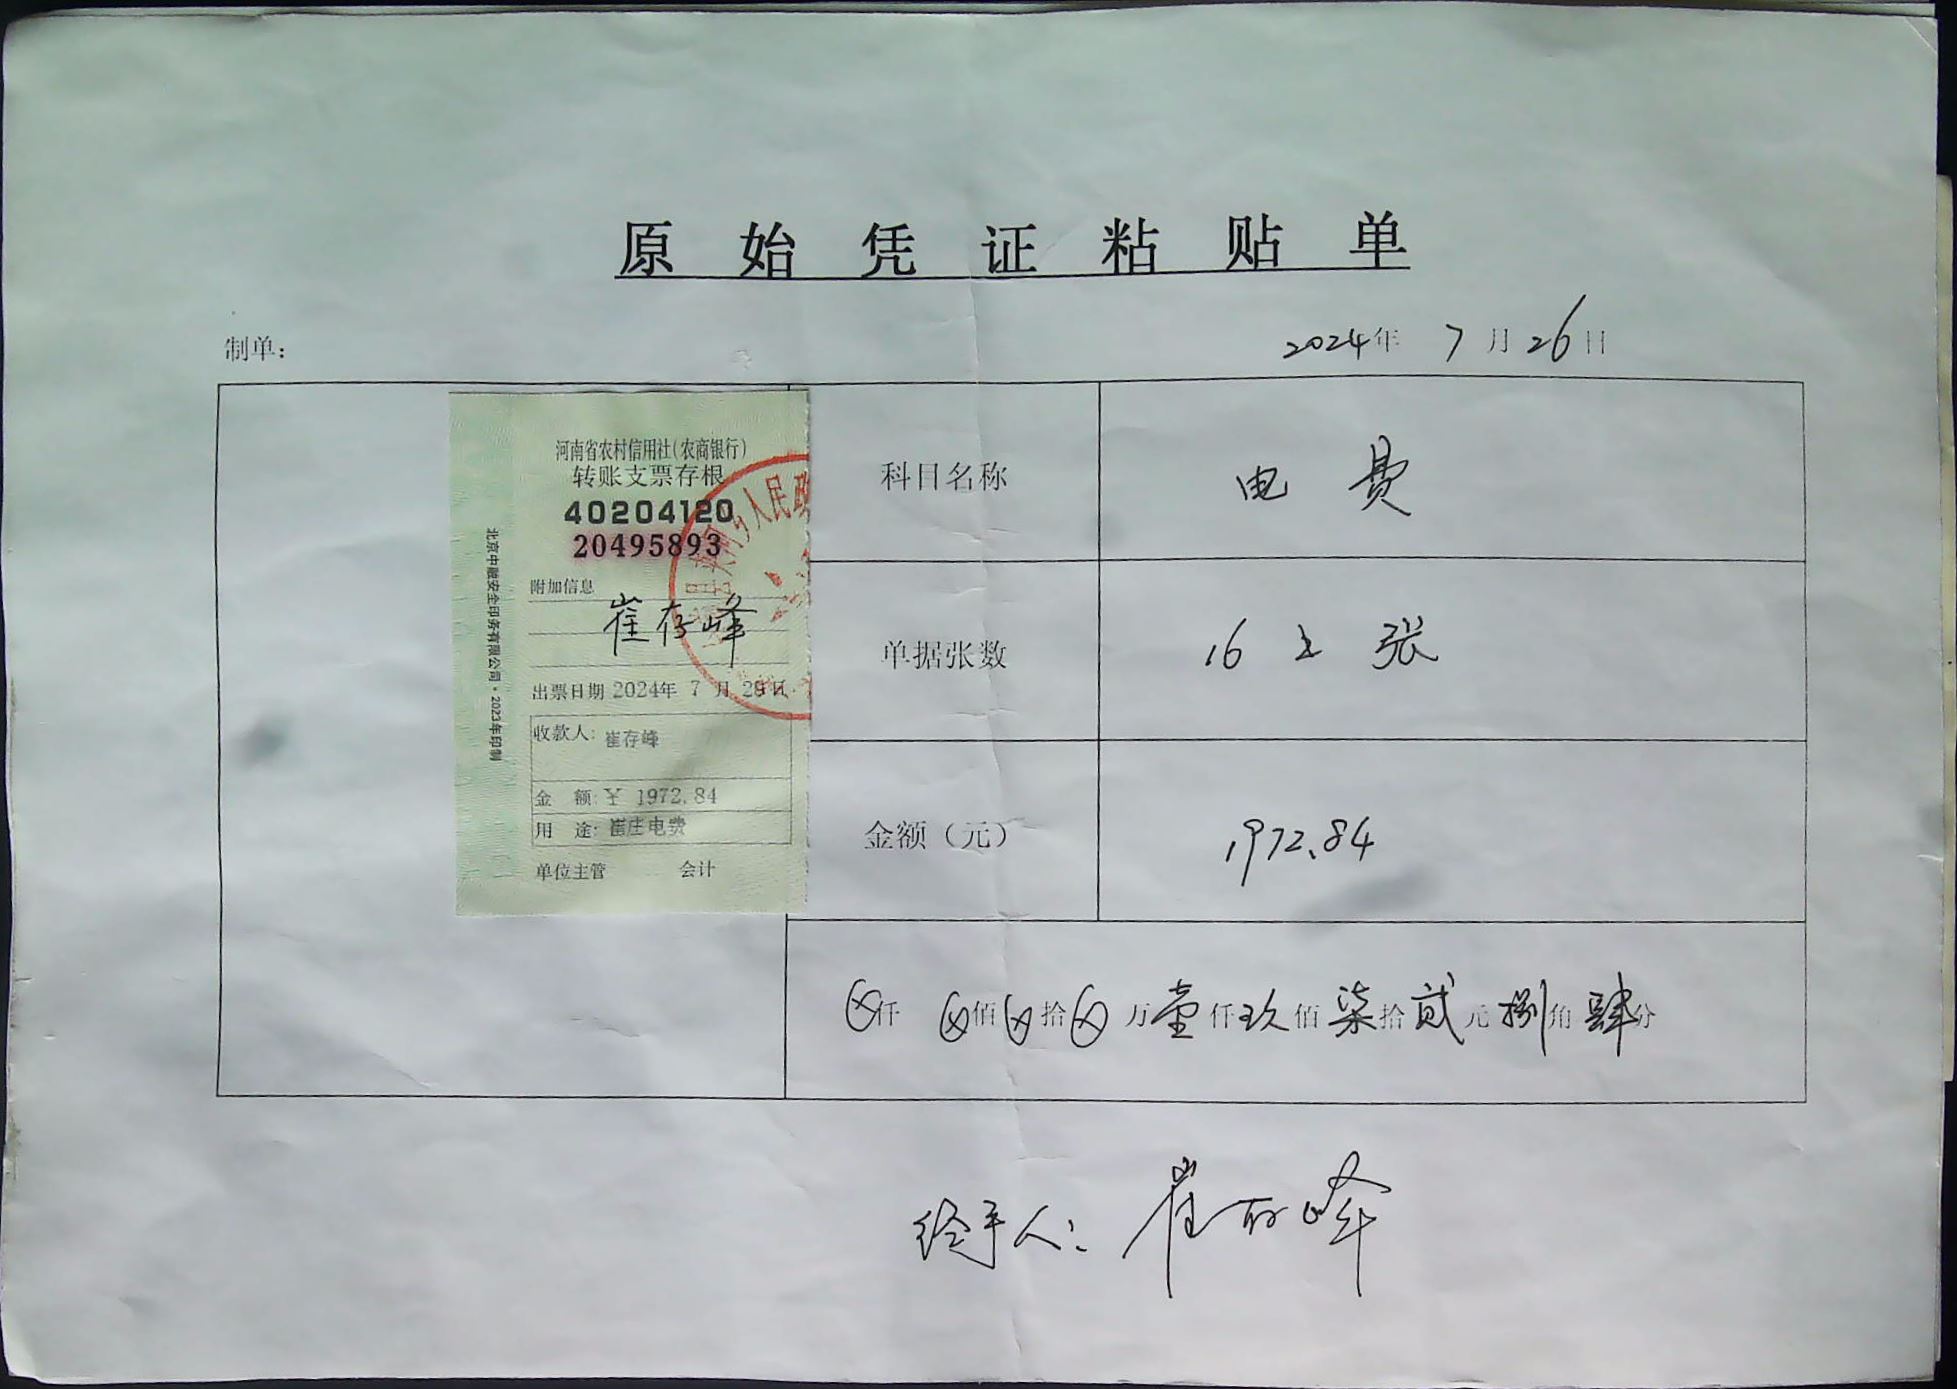 原始凭证粘贴单
制单：
2024年 7月26日
河南省农村信用社(农商银行)
转账支票存根
40204120
20495893
附加信息
崔存峰
出票日期 2024年 7月 29日
收款人: 崔存峰
金 额: ¥ 1972.84
用 途: 崔庄电费
单位主管 会计
北京中融安全印务有限公司·2023年印制
人民政
科目名称 电费
单据张数 16 张
金额（元） 1972.84
仟 佰 拾 万 壹仟玖佰柒拾贰元捌角肆分
经手人: 崔存峰